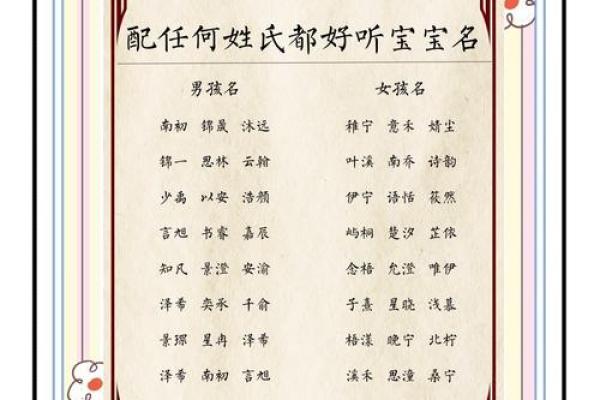 配任何姓氏都好听宝宝名
男孩名 女孩名
南初 锦晟 沐远 稚宁 意禾 婧尘
锦一 思林 云翰 叶溪 南乔 诗韵
少禹 以安 浩颜 伊宁 语恬 筱然
言旭 书睿 嘉辰 屿桐 楚汐 芷依
知凡 景澄 安渝 念梧 允澄 唯伊
泽希 奕承 千俞 于熹 星晓 浅慕
景琛 星冉 泽希 梧漾 晚宁 北柠
泽希 南初 言旭 溪禾 思潼 桑宁